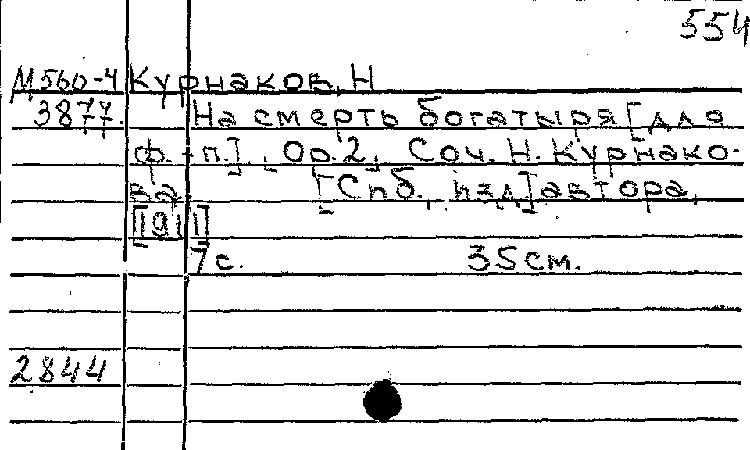 554
М560-4 Курнаков, Н
3877. На смерть богатыря [для
ф.-п.]. Ор. 2. Соч. Н. Курнако-
ва [Спб., изд] автора,
[1911]
7 с. 35 см.
2844